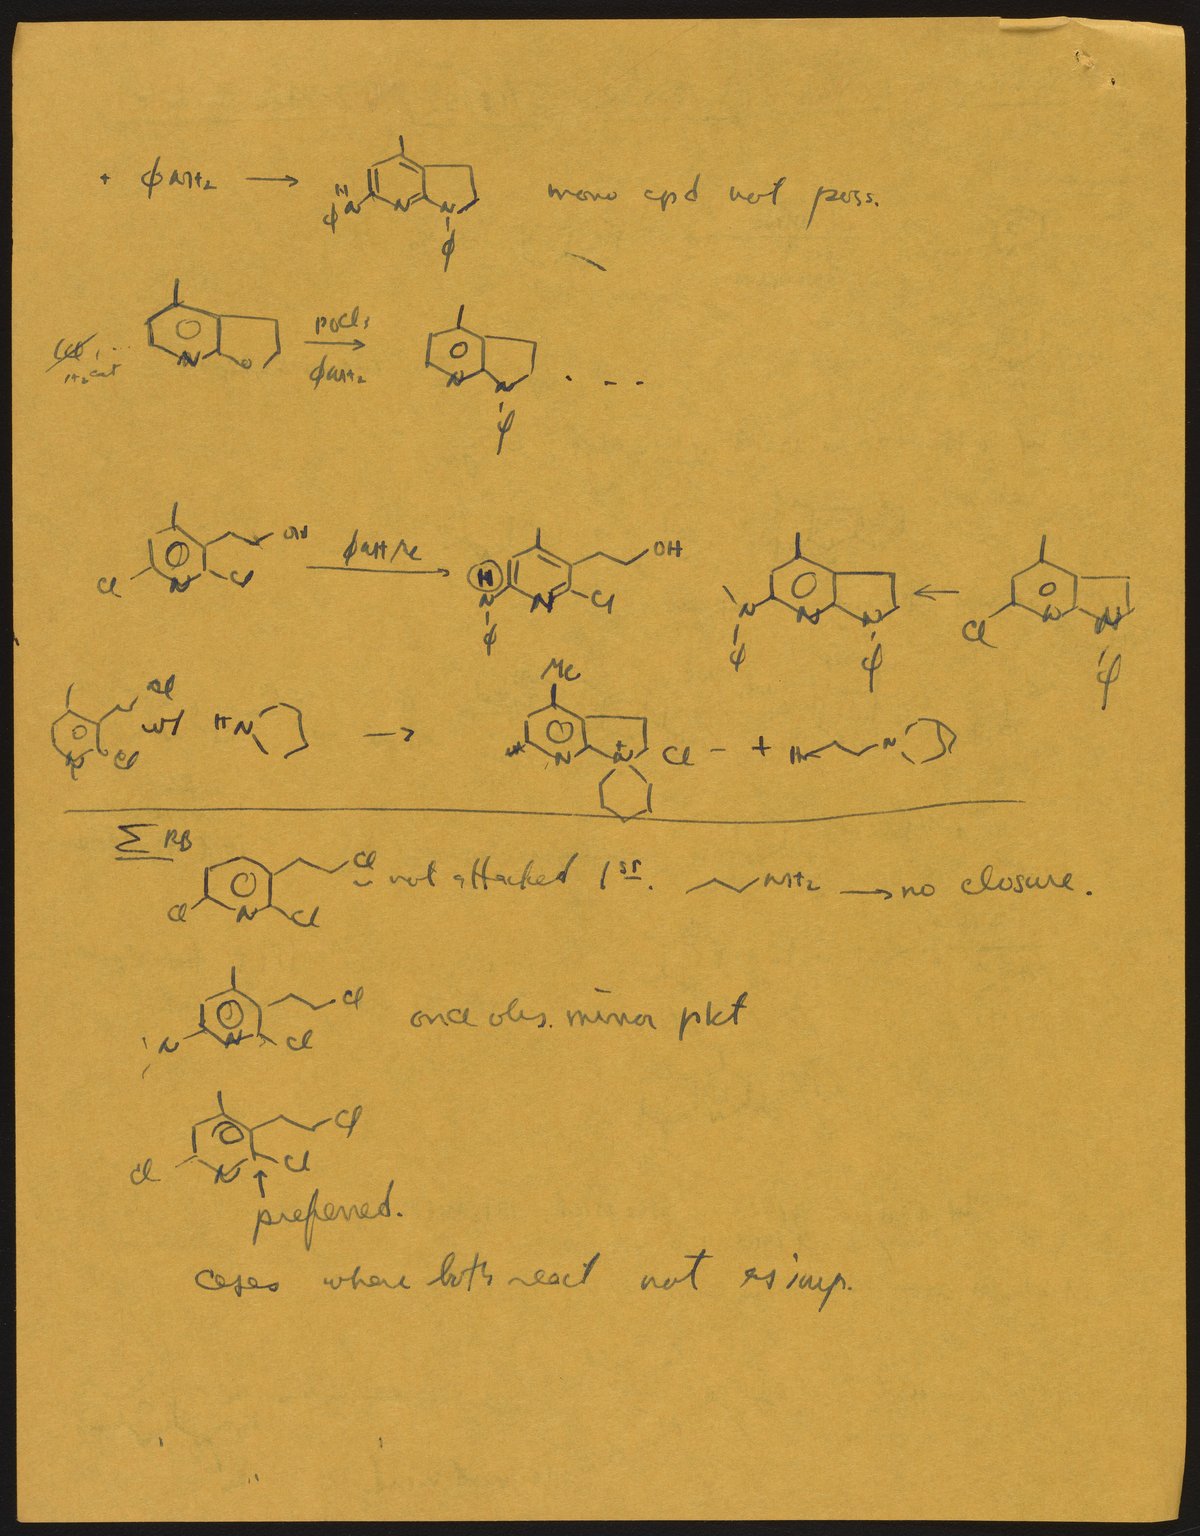 + ϕNH₂ → H ϕ N N N ϕ mono cpd not poss.
H₂ cat N O POCl₃ ϕNH₂ N N ϕ . - -
Cl N Cl OH ϕNHMe H N ϕ N Cl OH N ϕ N N ϕ ← Cl N N ϕ
N Cl Cl w/ HN → Me N N + Cl - + N
Σ RB
Cl N Cl Cl not attacked 1st. NH₂ → no closure.
N N Cl Cl once obs. minor pdt
Cl N Cl Cl
↑
preferred.
cases where both react not as imp.